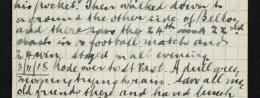 his pocket. Then walked down to
a ground the other side of Belloy
and there saw the 24th wick 22nd
in a football match and
24 stayed in all evening
3/11/18 Rode over to St Vast. A dull grey
morning trying to rain. Saw all my
old friends there and hand lunch